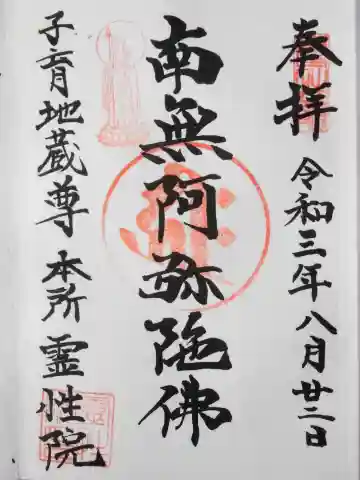 奉拝 令和三年八月廿二日
南無阿弥陀佛
子育地蔵尊 本所 霊性院